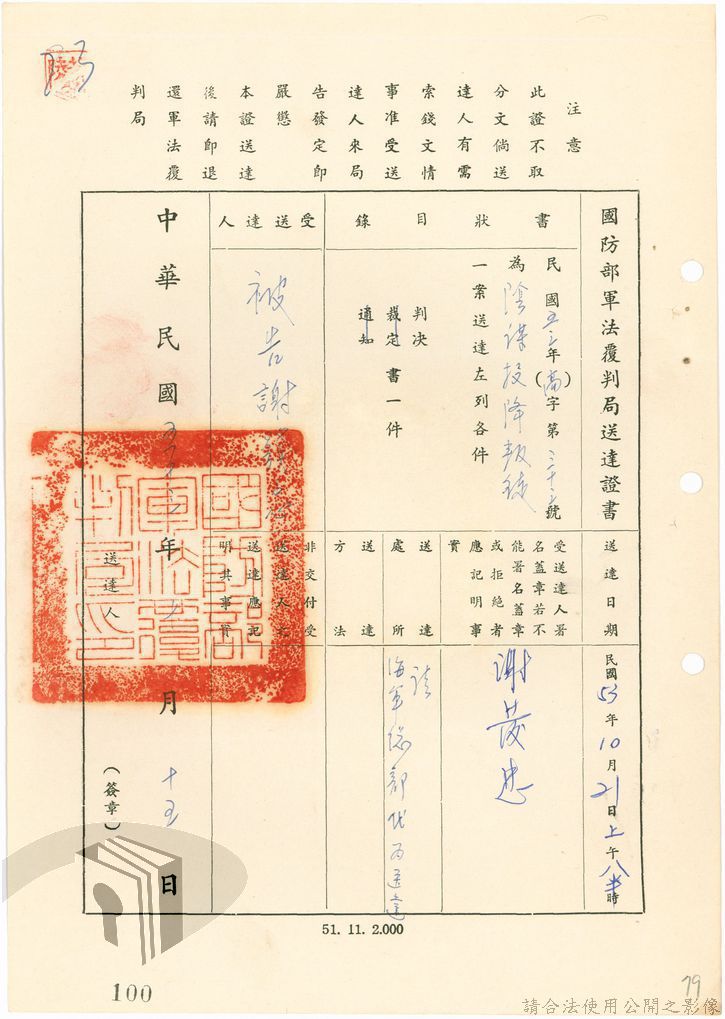 注意
此證不取
分文倘送
達人有需
索錢文情
事准受送
達人來局
告發定即
嚴懲
本證送達
後請即退
還軍法覆
判局
國防部軍法覆判局送達證書
送達日期
民國53年10月21日上午八時
書狀目錄
民國五三年(高)字第三十二號
為陰謀投降叛徒
一案送達左列各件
判決
裁定書一件
通知
受送達人署
名蓋章若不
能署名蓋章
或拒絕者
應記明事
實
謝發忠
送達處所
請
海軍總部代為送達
送達方法
受送達人
被告謝發忠
非交付受
送達人之
送達應記
明其事實
中華民國五十三年十月十五日
送達人
(簽章)
國防部軍法覆判局印
51. 11. 2.000
100
79
請合法使用公開之影像